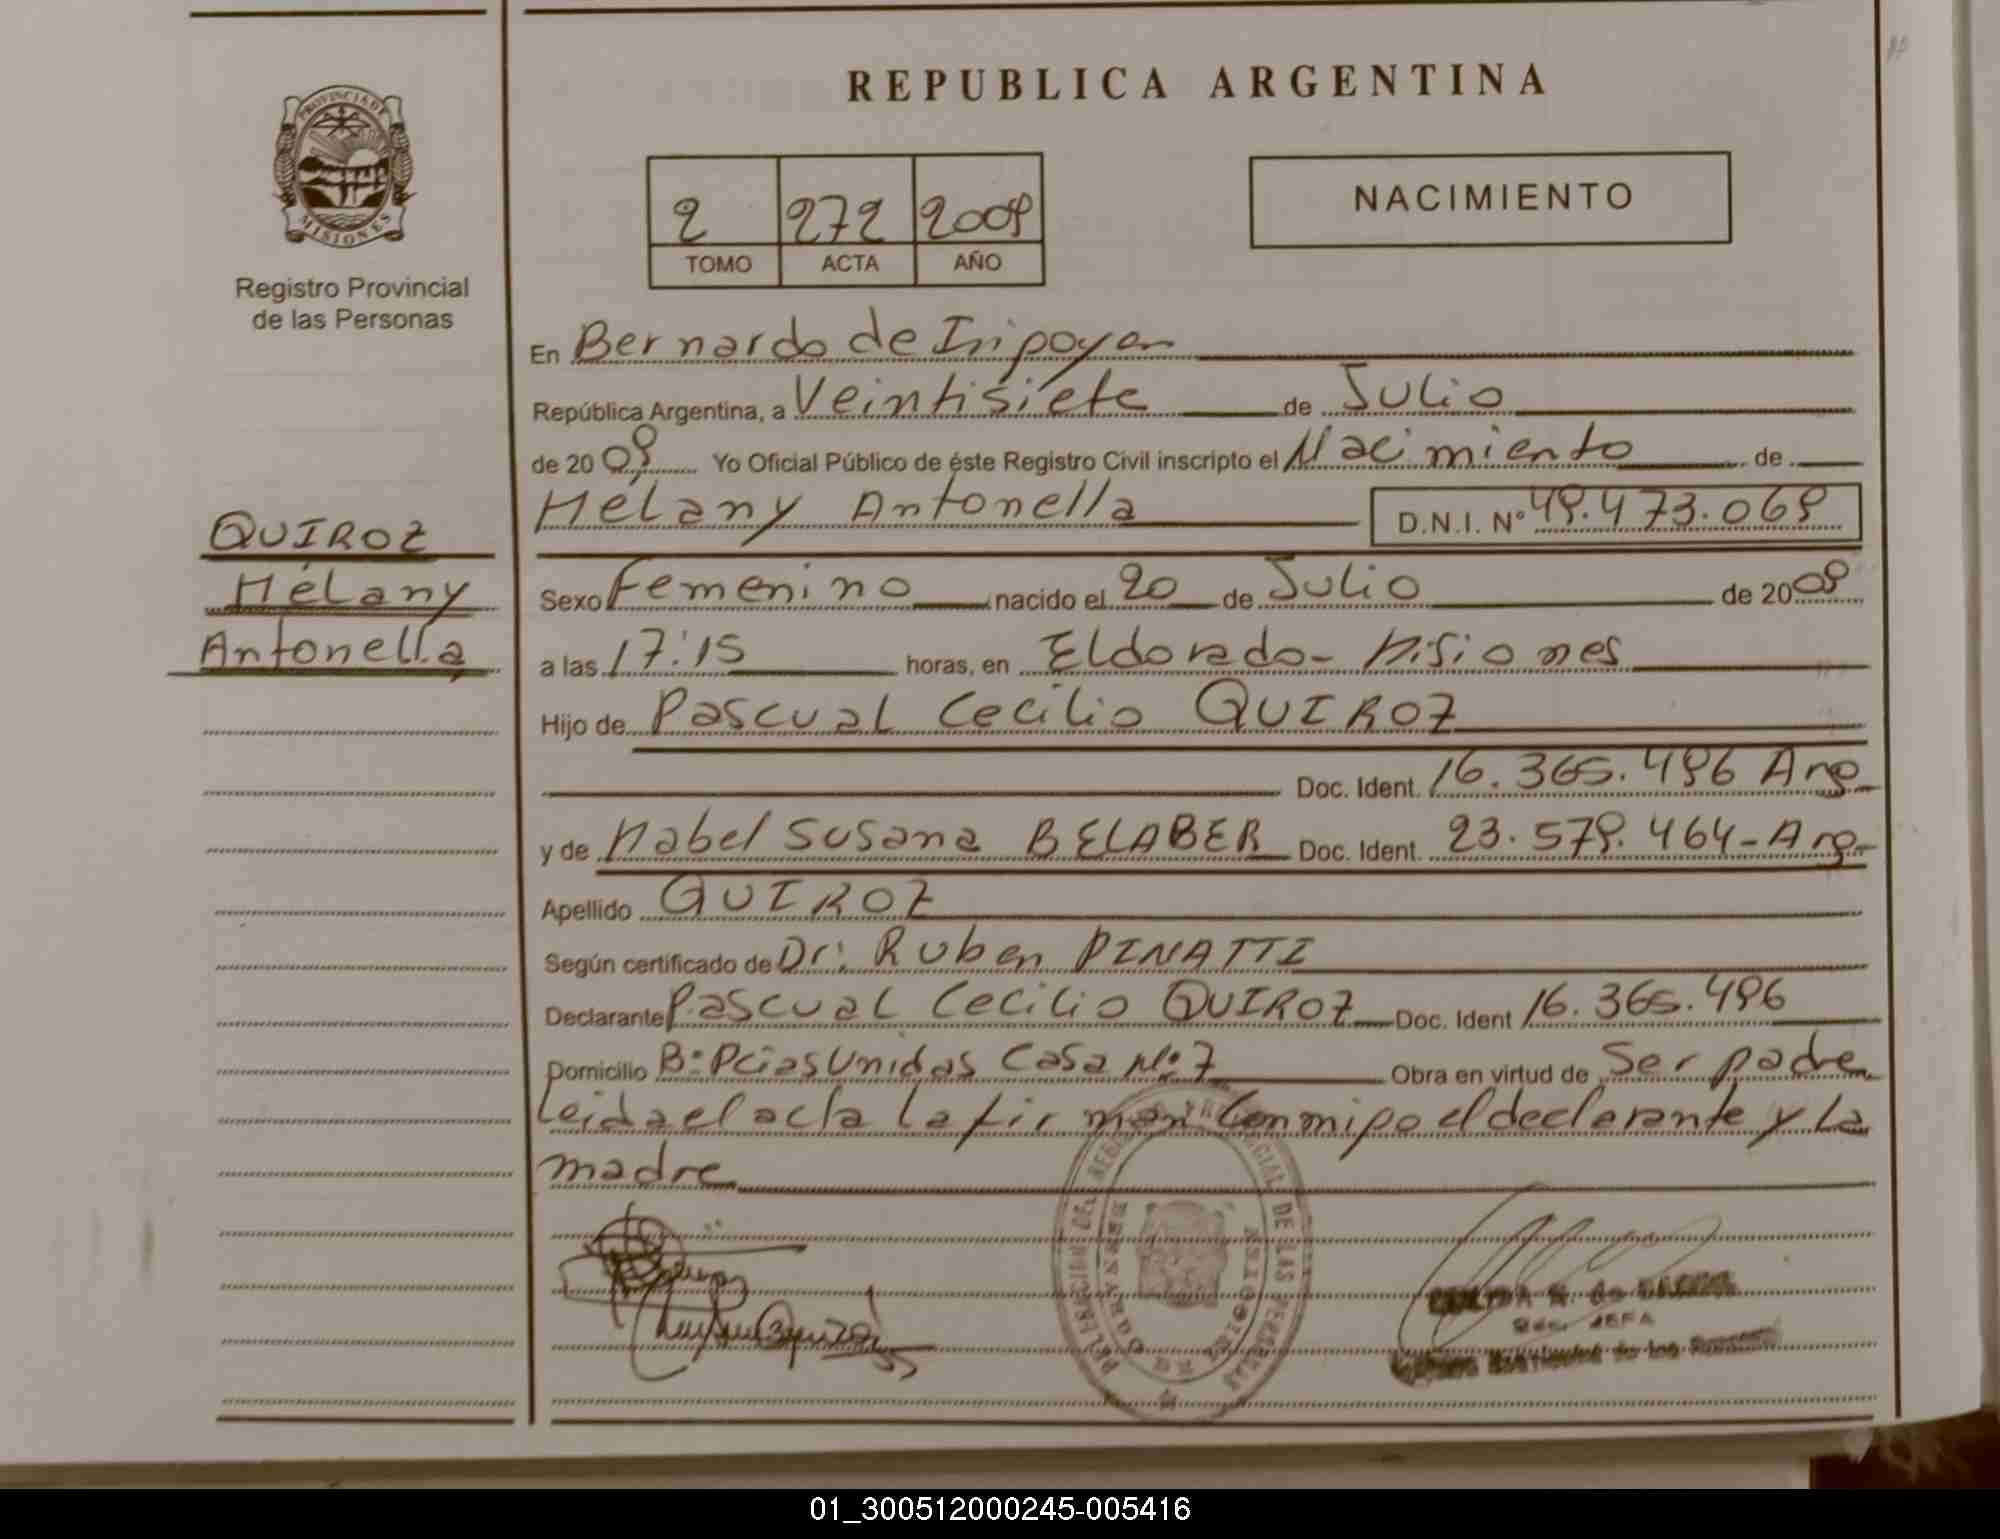 REPUBLICA ARGENTINA
PROVINCIA DE
MISIONES
Registro Provincial
de las Personas
2 272 2009
TOMO ACTA AÑO
NACIMIENTO
En Bernardo de Irigoyen
República Argentina, a Veintisiete de Julio
de 2009 Yo Oficial Público de éste Registro Civil inscripto el Nacimiento de
Mélany Antonella D.N.I. Nº 49.473.069
QUIROZ
Mélany
Antonella
Sexo Femenino nacido el 20 de Julio de 2009
a las 17:15 horas, en Eldorado- Misiones
Hijo de Pascual Cecilio QUIROZ
Doc. Ident. 16.365.496 Arg-
y de Mabel Susana BELABER Doc. Ident. 23.579.464-Arg-
Apellido QUIROZ
Según certificado de Dr: Ruben PINATTI
Declarante Pascual Cecilio QUIROZ Doc. Ident 16.365.496
Domicilio B: Pcias Unidas Casa Nº: 7 Obra en virtud de Ser padre
Leida el acta la firman Conmigo el declarante y La
madre
DELEGACION DEL REGISTRO PROVINCIAL DE LAS PERSONAS
BERNARDO DE IRIGOYEN
JEFA
de las Personas
01_300512000245-005416